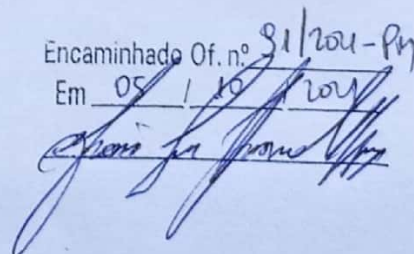 Encaminhado Of. n.º 91/2021-PM
Em 05 / 10 / 2021